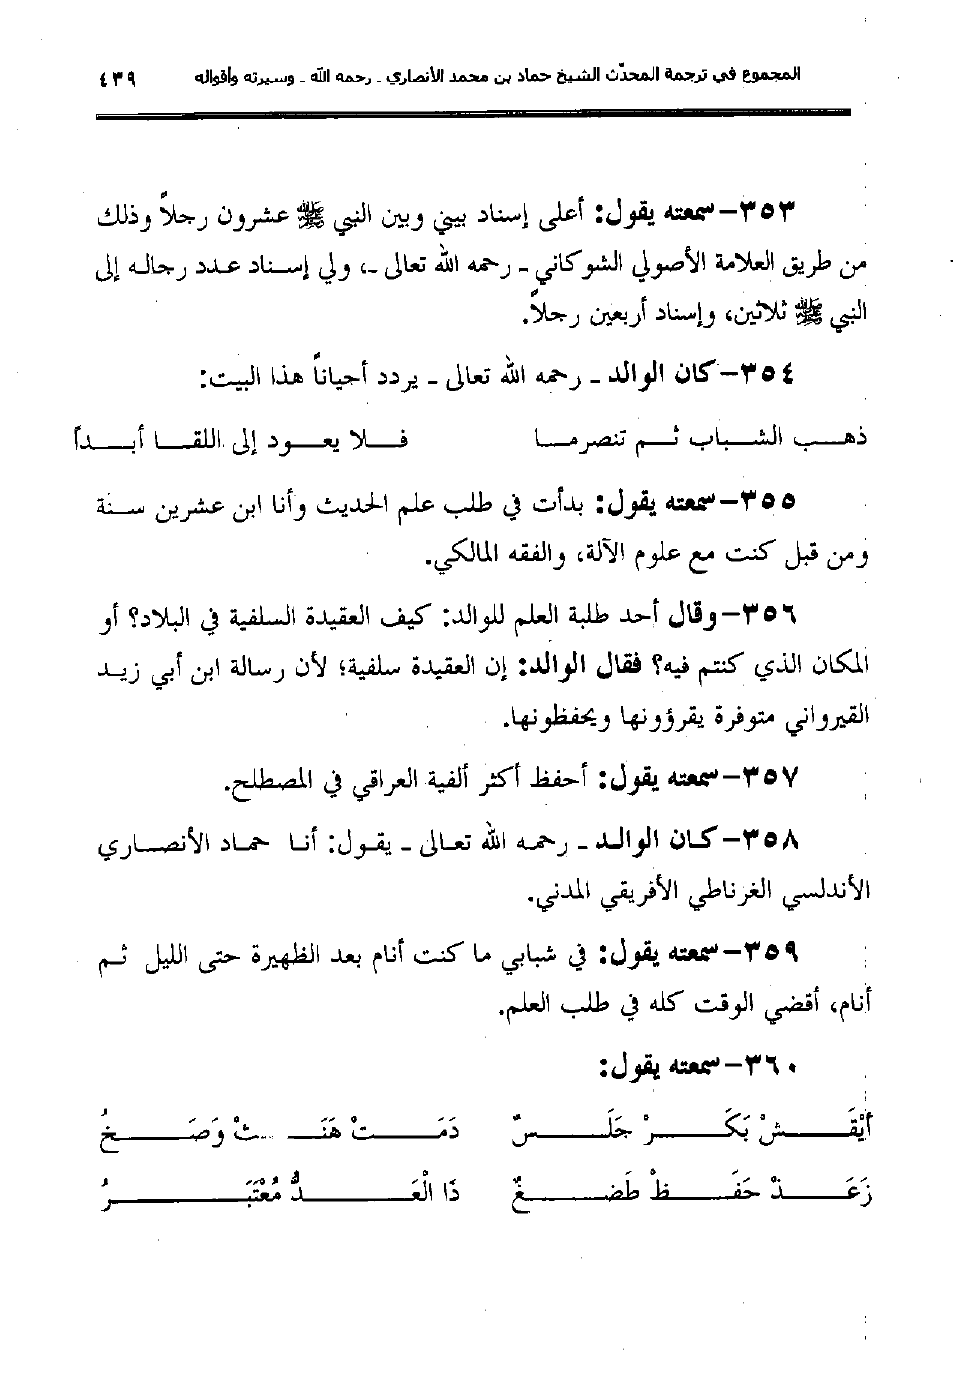 المجموع في ترجمة المحدّث الشيخ حماد بن محمد الأنصاري ـ رحمه الله ـ وسيرته وأقواله ٤٣٩
٣٥٣- سمعته يقول: أعلى إسناد بيني وبين النبي ﷺ عشرون رجلاً وذلك
من طريق العلامة الأصولي الشوكاني ـ رحمه الله تعالى ـ، ولي إسـناد عـدد رجالـه إلى
النبي ﷺ ثلاثين، وإسناد أربعين رجلاً.
٣٥٤- كان الوالد ـ رحمه الله تعالى ـ يردد أحياناً هذا البيت:
ذهـب الشـباب ثـم تنصرمـا فـلا يعـود إلى اللقـا أبـداً
٣٥٥- سمعته يقول: بدأت في طلب علم الحديث وأنا ابن عشرين سـنة
ومن قبل كنت مع علوم الآلة، والفقه المالكي.
٣٥٦- وقال أحد طلبة العلم للوالد: كيف العقيدة السلفية في البلاد؟ أو
المكان الذي كنتم فيه؟ فقال الوالد: إن العقيدة سلفية؛ لأن رسالة ابن أبي زيـد
القيرواني متوفرة يقرؤونها ويحفظونها.
٣٥٧- سمعته يقول: أحفظ أكثر ألفية العراقي في المصطلح.
٣٥٨- كـان الوالـد ـ رحمـه الله تعـالى ـ يقـول: أنـا حمـاد الأنصـاري
الأندلسي الغرناطي الأفريقي المدني.
٣٥٩- سمعته يقول: في شبابي ما كنت أنام بعد الظهيرة حتى الليل ثـم
أنام، أقضي الوقت كله في طلب العلم.
٣٦٠- سمعته يقول:
أَيْقَـشْ بَكَـرْ جَلَـسٌ دَمَـتْ هَنَـثْ وَصَـخُ
زَعَـذْ حَفَـظْ طَضَـغٌ ذَا الْعَـدُّ مُعْتَبَـرُ